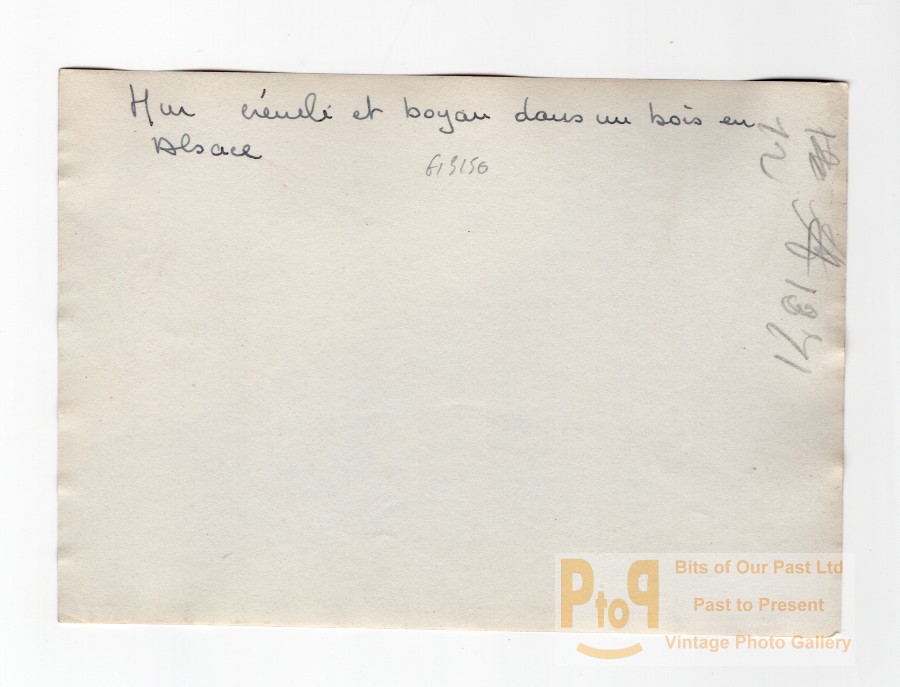 Mur crénelé et boyau dans un bois en
Alsace
12
1371
PtoP
Bits of Our Past Ltd
Past to Present
Vintage Photo Gallery